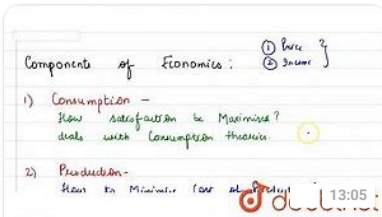 Components of Economics : ① Price
② Income
1) Consumption -
How satisfaction be Maximise?
deals with Consumption theories.
2) Production -
How to Minimise Cost of Product
doubtnut
13:05